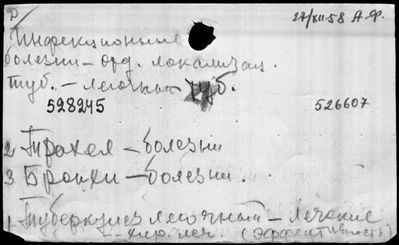 27/XII-58 А.Ф.
Инфекционные
болезни – орг. локализац.
Туб. – легочный туб.
528245 526607
2 Трахея – болезни
3 Бронхи – болезни.
1 Туберкулез легочный – лечение
– хир. леч. (эффективность)